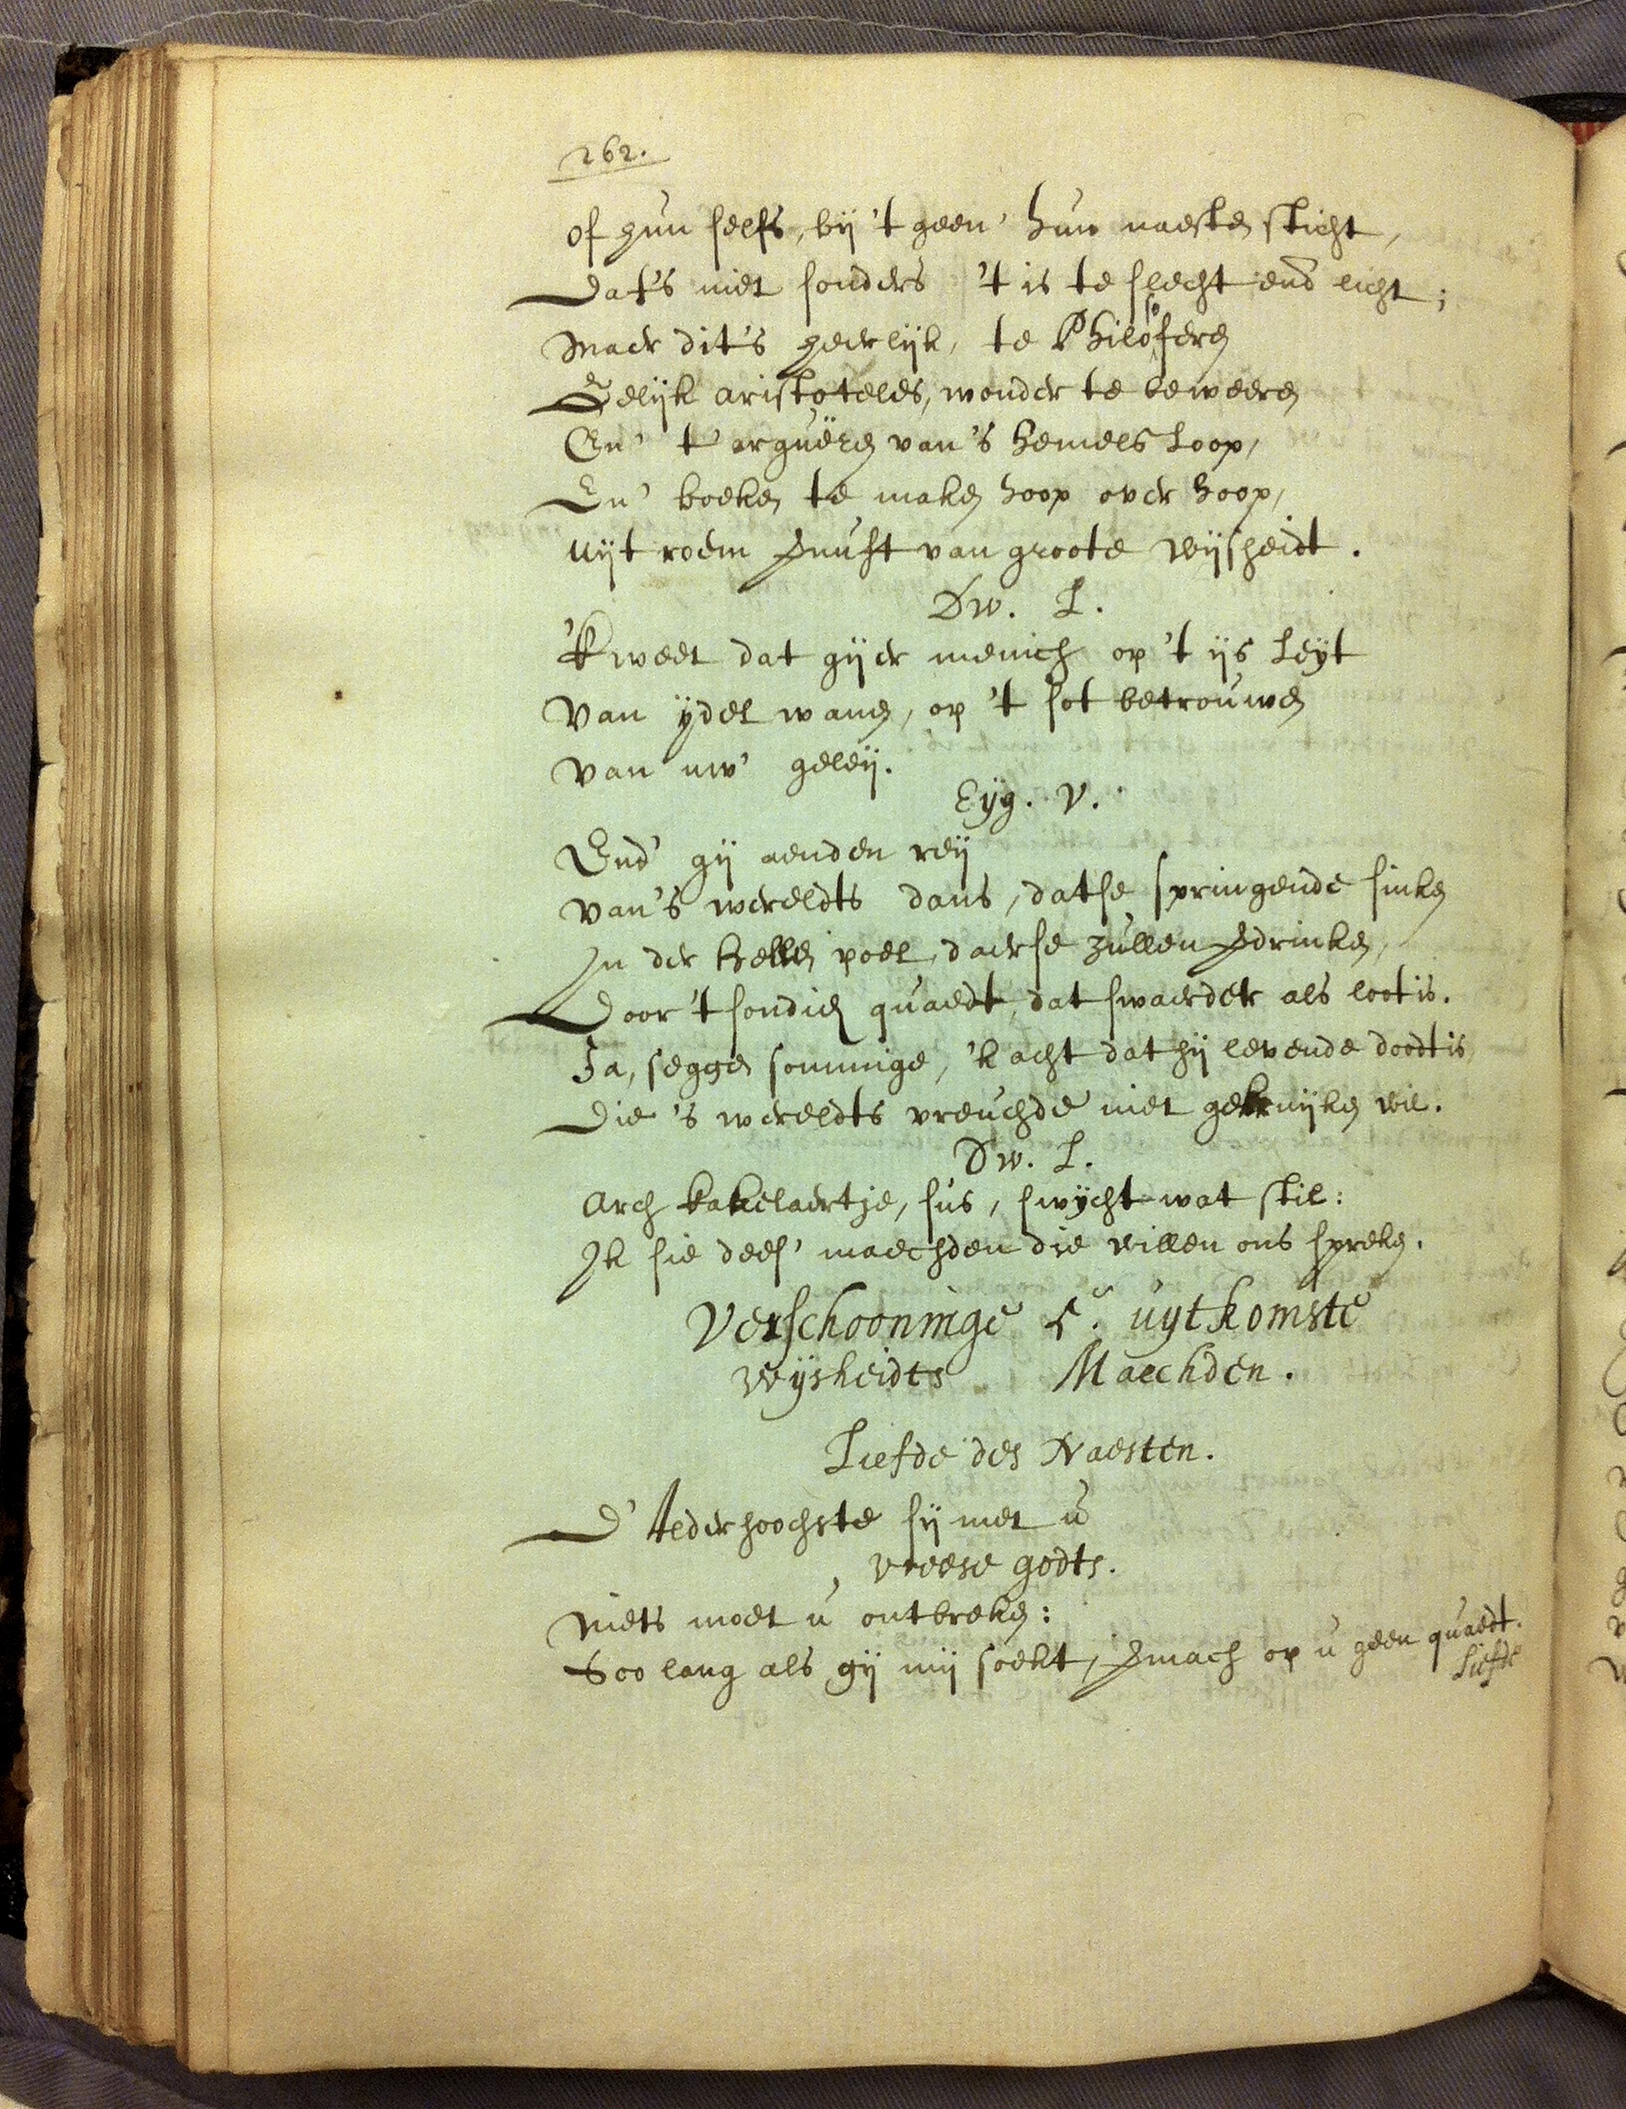 262.
of hun selfs, bij 't geen' hun naesten sticht,
Dat's niet sonders 't is te slecht end licht;
Maer dit's heerlijk, te Philosoferen
Gelijk Aristoteles, wonder te beweeren
En' t' arguëren van 's hemels loop,
En' boeken te maken hoop over hoop,
Uijt roem vernuft van groote wijsheidt.
Dw. L.
'K weet dat gij er menich op 't ijs leyt
Van ydel wanen, op 't sot betrouwen
Van uw' geleij.
Eyg. V.
End' gij aenden reij
Van 's wereldts dans, datse springende sinken
In der hellen poel, daerse zullen verdrinken,
Door 't sondich quaedt, dat swaerder als loot is.
Ja, seggen sommige, 'k acht dat hij levende doodt is
Die 's wereldts vreuchde niet gebruijken wil.
Dw. L.
Arch kakelaertje, sus, swycht wat stil:
Ik sie dees' maechden die willen ons spreken.
Verschooninge 5e. uytkomste
Wijsheidts Maechden.
Liefde des Naesten.
D' Alderhoochste sij met u
Vreese godts.
Niets moet u ontbreken:
Soo lang als gij mij soekt, vermach op u geen quaedt.
Liefde